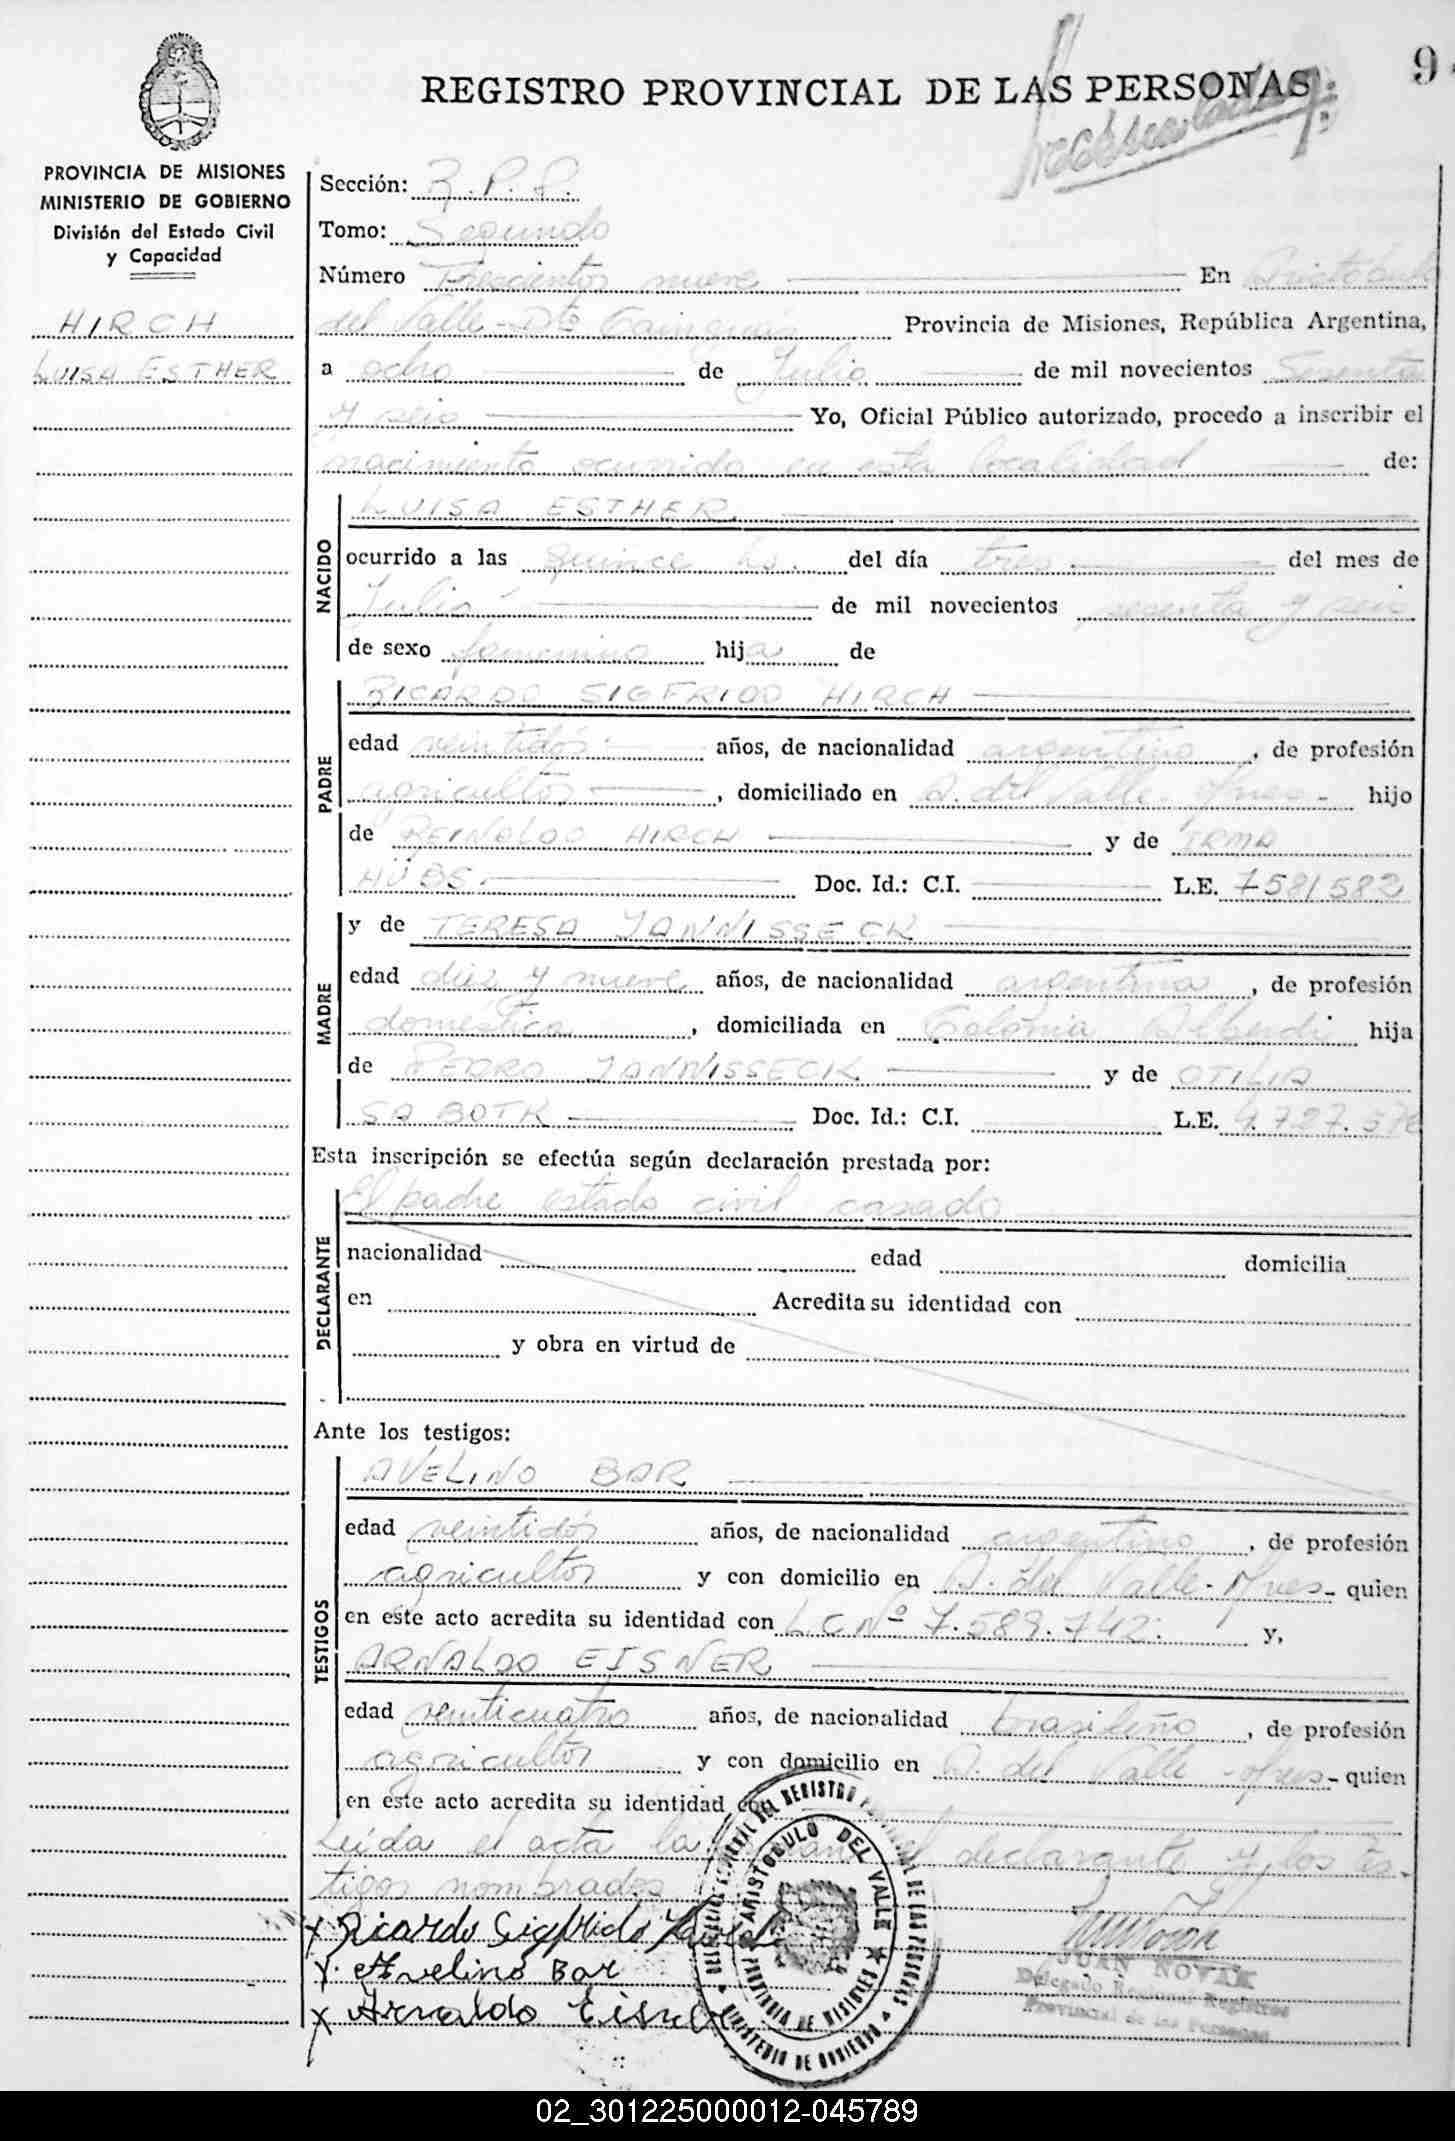 REGISTRO PROVINCIAL DE LAS PERSONAS
9
PROVINCIA DE MISIONES
MINISTERIO DE GOBIERNO
División del Estado Civil
y Capacidad
HIRCH
LUISA ESTHER
Sección: R.P.P.
Tomo: Segundo
Número Trescientos nueve En Aristóbulo
del Valle - Dto Cainguás Provincia de Misiones, República Argentina,
a ocho de Julio de mil novecientos Sesenta
y seis Yo, Oficial Público autorizado, procedo a inscribir el
nacimiento ocurrido en esta localidad de:
NACIDO
LUISA ESTHER
ocurrido a las quince hs. del día tres del mes de
Julio de mil novecientos sesenta y seis
de sexo femenino hija de
PADRE
RICARDO SIGFRIDO HIRCH
edad veintidós años, de nacionalidad argentino, de profesión
agricultor, domiciliado en A. del Valle - Mnes - hijo
de REINALDO HIRCH y de IRMA
HÜBS Doc. Id.: C.I. L.E. 7581582
MADRE
y de TERESA JANNISSECK
edad diez y nueve años, de nacionalidad argentina, de profesión
doméstica, domiciliada en Colonia Alberdi hija
de PEDRO JANNISSECK y de OTILIA
SABOTK Doc. Id.: C.I. L.E. 4.727.576
Esta inscripción se efectúa según declaración prestada por:
DECLARANTE
El padre estado civil casado
nacionalidad edad domicilia
en Acredita su identidad con
y obra en virtud de
Ante los testigos:
TESTIGOS
AVELINO BAR
edad veintidós años, de nacionalidad argentino, de profesión
agricultor y con domicilio en A. del Valle - Mnes - quien
en este acto acredita su identidad con L.C. Nº 7.589.742. y,
ARNALDO EISNER
edad veinticuatro años, de nacionalidad brasileño, de profesión
agricultor y con domicilio en A. del Valle - Mnes - quien
en este acto acredita su identidad con
Leída el acta la firman el declarante y los tes-
tigos nombrados
x Ricardo Sigfrido Hirch
x Avelino Bar
x Arnaldo Eisner
ARISTOBULO DEL VALLE
PROVINCIA DE MISIONES
MINISTERIO DE GOBIERNO
JUAN NOVAK
Delegado Regional Registros
Provincial de las Personas
02_301225000012-045789